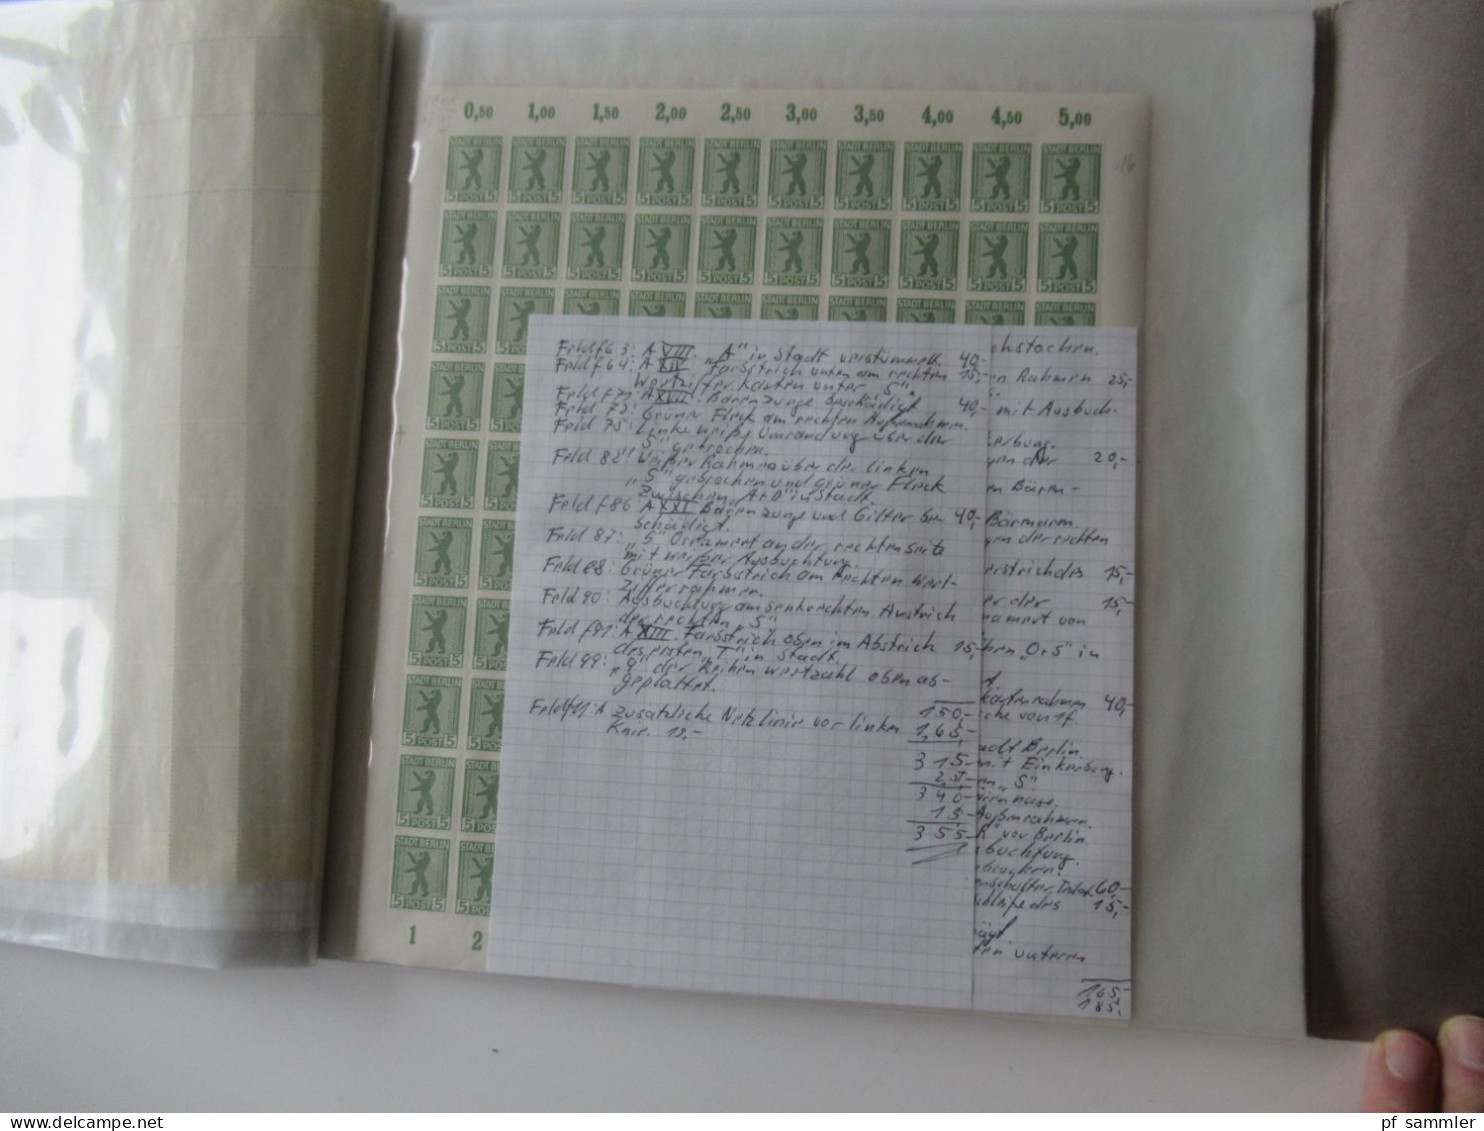 0,50 1,00 1,50 2,00 2,50 3,00 3,50 4,00 4,50 5,00
STADT BERLIN
5 POST 5
16
Feld f63: A VIII. „A" in Stadt verstümmelt. 40,-
Feld f64: A XIV. Farbstrich unten am rechten 15,-
Wertzifferkasten unter „5".
Feld f71: A XVII. Bärenzunge beschädigt 40,-
Feld 72: Grüner Fleck am rechten Außenrahmen.
Feld 75: Linke weiße Umrandung über der
„5" gebrochen.
Feld 82: Weißer Rahmen über der linken
„5" gebrochen und grüner Fleck
zwischen „A+D" in Stadt.
Feld f86 A XXI Bärenzunge und Gitter be- 40,-
schädigt.
Feld 87: „5" Ornament an der rechten Seite
mit weißer Ausbuchtung.
Feld 88: Grüner Farbstrich am rechten Wert-
zifferrahmen.
Feld 90: Ausbuchtung am senkrechten Anstrich
der rechten „5"
Feld f91: A XIII. Farbstrich oben im Abstrich 15,-
des ersten „T" in Stadt.
Feld 99: „9" der Reihenwertzahl oben ab-
geplattet.
Feld f11: A Zusätzliche Netzlinie vor linken
Knie. 12,-
150,-
1,65,-
315,-
25,-
340,-
15,-
355,-
chstochen.
en Rahmen 25,-
mit Ausbuch-
erbung.
gen der 20,-
en Bären-
Bärenarm.
gen der rechten
erstrich des 15,-
er der 15,-
nament von
hen „O+S" in
kastenrahmen 40,-
che von 1f
adt Berlin
mit Einkerbung.
en „5"
renase.
Außenrahmen.
R" vor Berlin
sbuchtung.
ebrochen.
60,-
chleife des 15,-
ägt
ten unteren
165,-
185,-
1 2
pf sammler